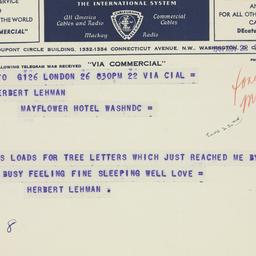 THE INTERNATIONAL SYSTEM
All America Cables and Radio
Commercial Cables
Mackay Radio
UPONT CIRCLE BUILDING, 1332-1334 CONNECTICUT AVENUE, N.W., WASHINGTON
AND FOR ALL OTHE
DEcatu
MMERCIAL"
OLLOWING TELEGRAM WAS RECEIVED "VIA COMMERCIAL"
TO G126 LONDON 26 830PM 22 VIA CIAL =
ERBERT LEHMAN
MAYFLOWER HOTEL WASHNDC =
S LOADS FOR TREE LETTERS WHICH JUST REACHED ME BY
BUSY FEELING FINE SLEEPING WELL LOVE =
HERBERT LEHMAN .
8